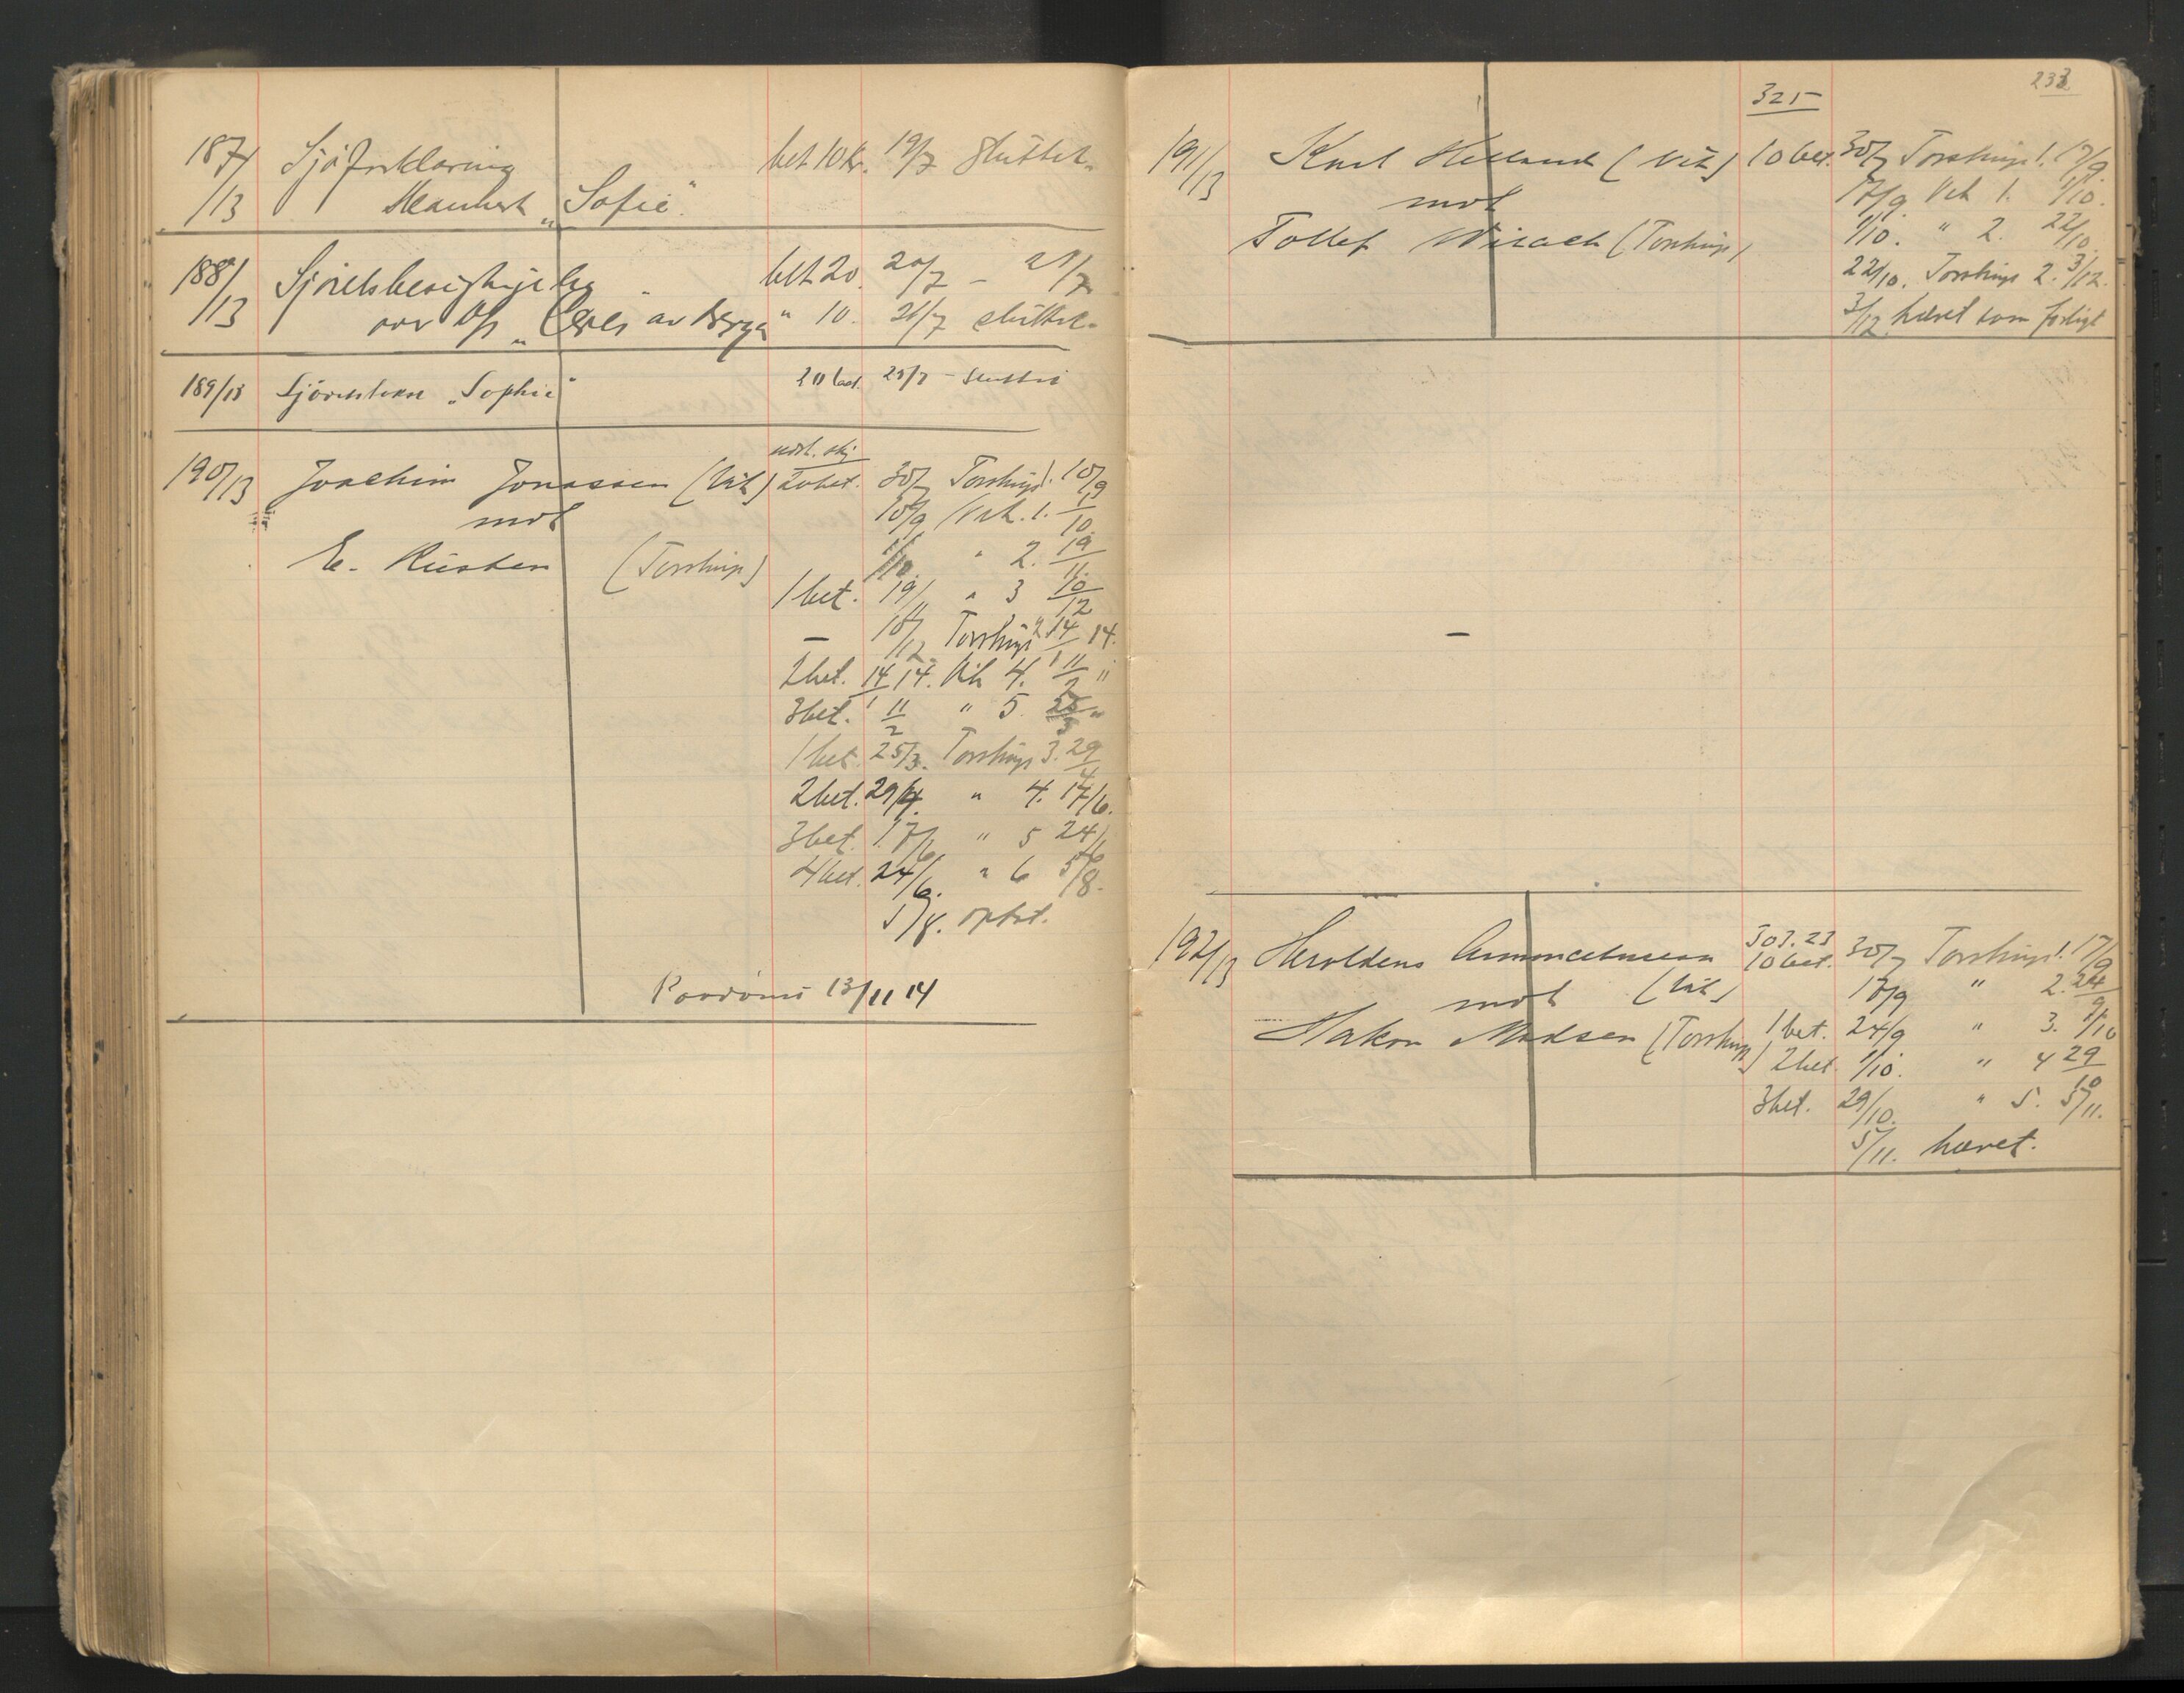 187/13 Sjöforklaring bet 10 kr. 19/7 Sluttet.
"Sofie".
188/13 bet 20. 20/7 - 21/7
over D/S "Ceres" av Bergen " 10. 21/7 sluttet.
189/13 "Sophie" 20 bet. 25/7 -
190/13 Joachim Jonassen (Vik) 20 bet. 30/7 Torstrup 1. 10/9
mot 10/9 Vik. 1. 1/10
E. Rusten (Torstrup) 1/10. " 2. 19/11.
1 bet. 19/11 " 3 10/12
— 10/12 Torstrup 2 14/1 14.
2 bet. 14/1 14. Vik 4. 11/2 "
3 bet. 11/2 " 5. 25/3 "
1 bet. 25/3. Torstrup 3. 29/4
2 bet. 29/4. " 4. 17/6.
3 bet. 17/6 " 5 24/6
4 bet. 24/6. " 6 5/8.
5/8. optat.
13/11 14
233
325
191/13 Knut Helland (Vik) 10 bet. 30/7 Torstrup 1. 17/9.
mot 17/9. Vik 1. 1/10.
Tollef (Torstrup) 1/10. " 2. 22/10
22/10. Torstrup 2. 3/12.
3/12 hævet som forligt
192/13 Heroldens 303.23
10 bet. 30/7 Torstrup 1. 17/9
mot (Vik) 17/9 " 2. 24/9
Hakon Madsen (Torstrup) 1 bet. 24/9 " 3. 1/10
2 bet. 1/10. " 4 29/10
3 bet. 29/10. " 5. 5/11.
5/11. hævet.